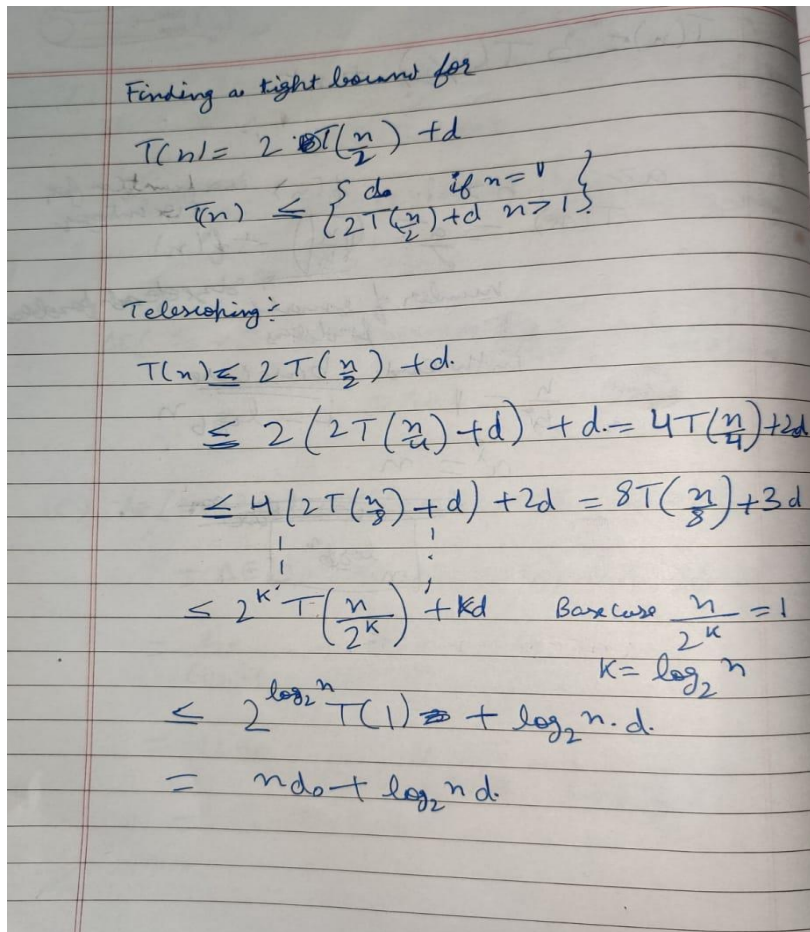 Finding a tight bound for
T(n) = 2 T(n/2) + d
T(n) ≤ { d₀ if n = 1
{ 2T(n/2) + d n > 1 }
Telescoping :-
T(n) ≤ 2T(n/2) + d.
≤ 2(2T(n/4) + d) + d. = 4T(n/4) + 2d
≤ 4(2T(n/8) + d) + 2d = 8T(n/8) + 3d
≤ 2^K T(n/2^K) + Kd Base case n/2^K = 1
K = log₂ n
≤ 2^(log₂ n) T(1) + log₂ n · d.
= nd₀ + log₂ n d.